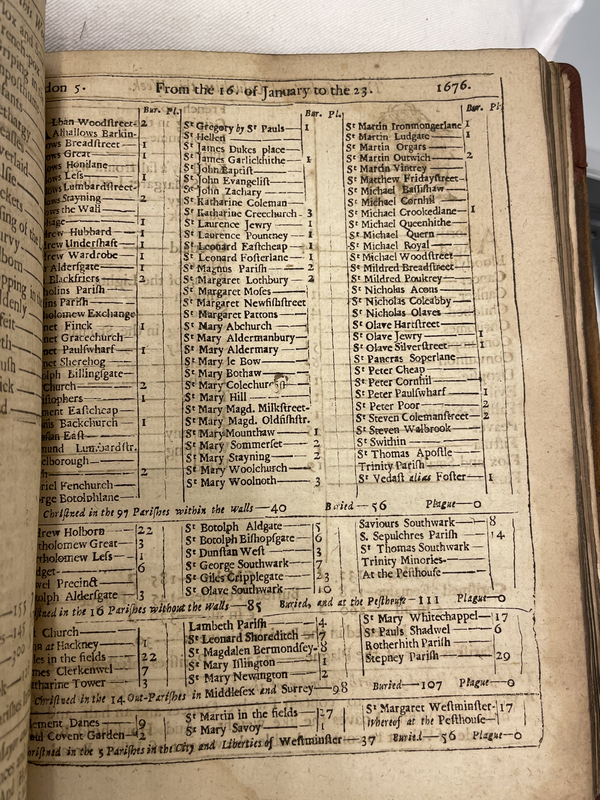 don 5. From the 16. of January to the 23. 1676.
Bur. Pl. Bur. Pl. Bur. Pl.
lban Woodſtreet- 2
Alhallows Barkin-
ows Breadſtreet 1
ows Great 1
ows Honilane
ows Leſs 1
ows Lumbardſtreet-
ows Stayning 2
ows the Wall
phage 1
rew Hubbard 1
rew Underſhaft 1
rew Wardrobe 1
Alderſgate 1
Blackfriers 2
holins Pariſh
ins Pariſh
holomew Exchange
net Finck 1
net Gracechurch
net Paulſwharf 1
net Sherehog
olph Billingſgate
Church 2
iſtophers 1
ment Eaſtcheap
nis Backchurch 1
ſtan Eaſt
mund Lumbardſtr.
elborough
2
riel Fenchurch
rge Botolphlane
St Gregory by St Pauls 1
St Hellen
St James Dukes place
St James Garlickhithe 1
St John Baptiſt
St John Evangeliſt
St John Zachary
St Katharine Coleman
St Katharine Creechurch 3
St Laurence Jewry 1
St Laurence Pountney 1
St Leonard Eaſtcheap 1
St Leonard Foſterlane 1
St Magnus Pariſh 2
St Margaret Lothbury 2
St Margaret Moſes
St Margaret Newfiſhſtreet
St Margaret Pattons
St Mary Abchurch
St Mary Aldermanbury
St Mary Aldermary
St Mary le Bow
St Mary Bothaw
St Mary Colechurch
St Mary Hill
St Mary Magd. Milkſtreet-
St Mary Magd. Oldfiſhſtr.
St Mary Mounthaw 1
St Mary Sommerſet 2
St Mary Stayning 2
St Mary Woolchurch
St Mary Woolnoth 3
St Martin Ironmongerlane 1
St Martin Ludgate 1
St Martin Orgars
St Martin Outwich 2
St Martin Vintrey
St Matthew Fridayſtreet
St Michael Baſſiſhaw
St Michael Cornhil
St Michael Crookedlane 1
St Michael Queenhithe
St Michael Quern
St Michael Royal
St Michael Woodſtreet
St Mildred Breadſtreet
St Mildred Poultrey
St Nicholas Acons
St Nicholas Coleabby
St Nicholas Olaves
St Olave Hartſtreet
St Olave Jewry 1
St Olave Silverſtreet 1
St Pancras Soperlane
St Peter Cheap
St Peter Cornhil
St Peter Paulſwharf 1
St Peter Poor 2
St Steven Colemanſtreet 2
St Steven Walbrook
St Swithin
St Thomas Apoſtle
Trinity Pariſh
St Vedaſt alias Foſter 1
Chriſtned in the 97 Pariſhes within the Walls—40 Buried—56 Plague—0
drew Holborn 22
tholomew Great 3
tholomew Leſs 1
dget 6
wel Precinct
tolph Alderſgate 3
St Botolph Aldgate 5
St Botolph Biſhopſgate 6
St Dunſtan Weſt 3
St George Southwark 7
St Giles Cripplegate 23
St Olave Southwark 10
Saviours Southwark 8
S. Sepulchres Pariſh 14
St Thomas Southwark
Trinity Minories
At the Peſthouſe
ſtned in the 16 Pariſhes without the Walls—85 Buried, and at the Peſthouſe—111 Plague—0
Church
n at Hackney 1
les in the fields 22
mes Clerkenwel 7
tharine Tower 3
Lambeth Pariſh 4
St Leonard Shoreditch 7
St Magdalen Bermondſey 8
St Mary Iſlington 1
St Mary Newington 2
St Mary Whitechappel 17
St Pauls Shadwel 6
Rotherhith Pariſh
Stepney Pariſh 29
Chriſtned in the 14 Out-Pariſhes in Middleſex and Surrey—98 Buried—107 Plague—0
lement Danes 9
aul Covent Garden 2
St Martin in the fields 27
St Mary Savoy 1
St Margaret Weſtminſter- 17
Whereof at the Peſthouſe-
hriſtned in the 5 Pariſhes in the City and Liberties of Weſtminſter—37 Buried—56 Plague—0